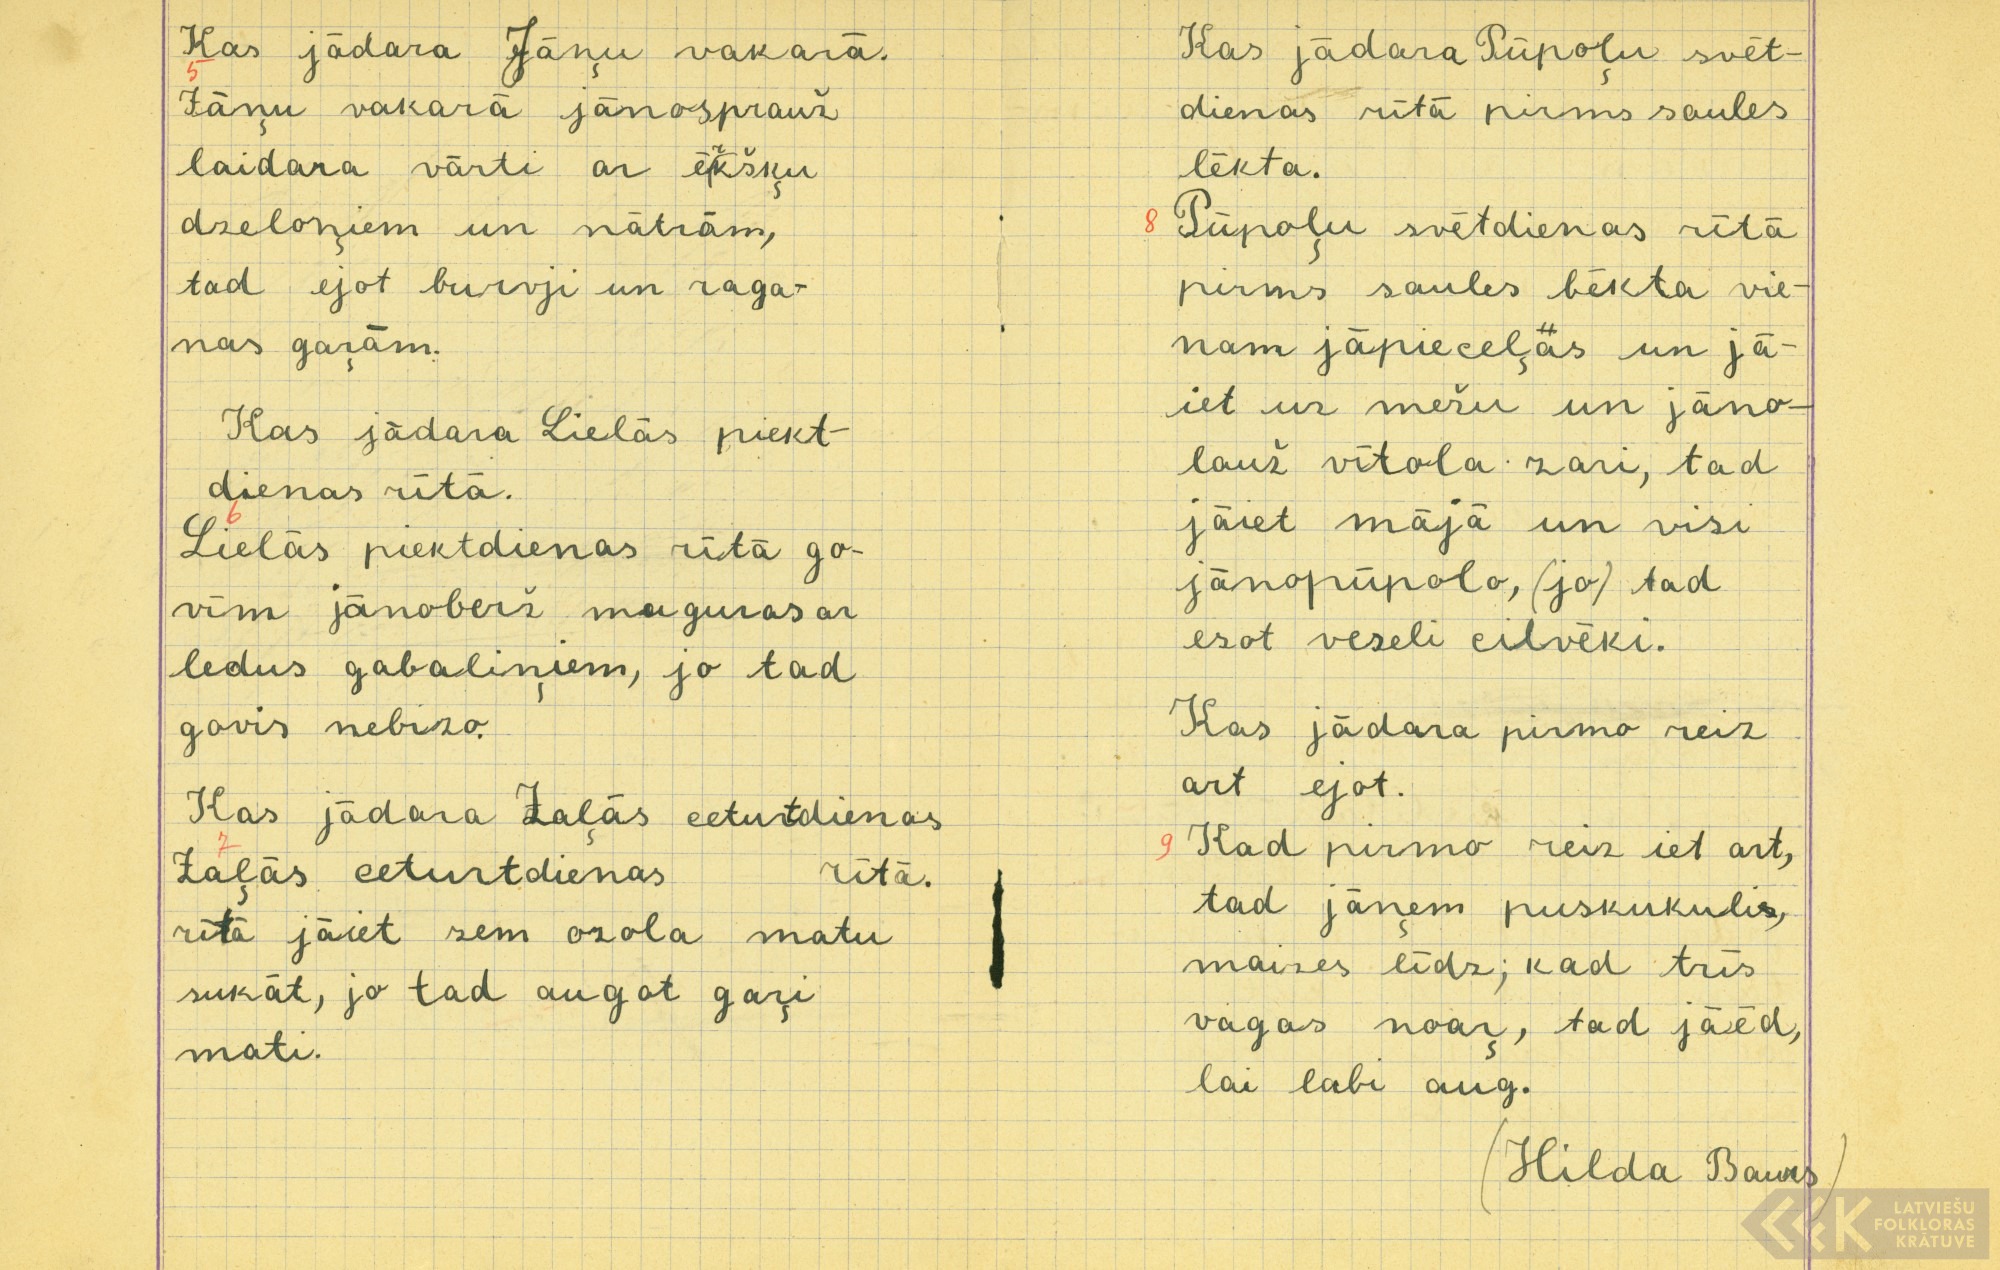 Kas jādara Jāņu vakarā.
5
Jāņu vakarā jānosprauž
laidara vārti ar ēršķu
dzeloņiem un nātrām,
tad ejot burvji un raga-
nas gaŗām.
Kas jādara Lielās piekt-
dienas rītā.
6
Lielās piektdienas rītā go-
vīm jānoberž muguras ar
ledus gabaliņiem, jo tad
govis nebizo.
Kas jādara Zaļās ceturtdienas
rītā.
7
Zaļās ceturtdienas
rītā jāiet zem ozola matu
sukāt, jo tad augot gaŗi
mati.
Kas jādara Pūpoļu svēt-
dienas rītā pirms saules
lēkta.
8 Pūpoļu svētdienas rītā
pirms saules lēkta vie-
nam jāpieceļās un jā-
iet uz mežu un jāno-
lauž vītola zari, tad
jāiet mājā un visi
jānopūpolo, (jo) tad
esot veseli cilvēki.
Kas jādara pirmo reiz
art ejot.
9 Kad pirmo reiz iet art,
tad jāņem puskukulis,
maizes līdz; kad trīs
vagas noaŗ, tad jāēd,
lai labi aug.
(Hilda Bauers)
LATVIEŠU
FOLKLORAS
KRĀTUVE